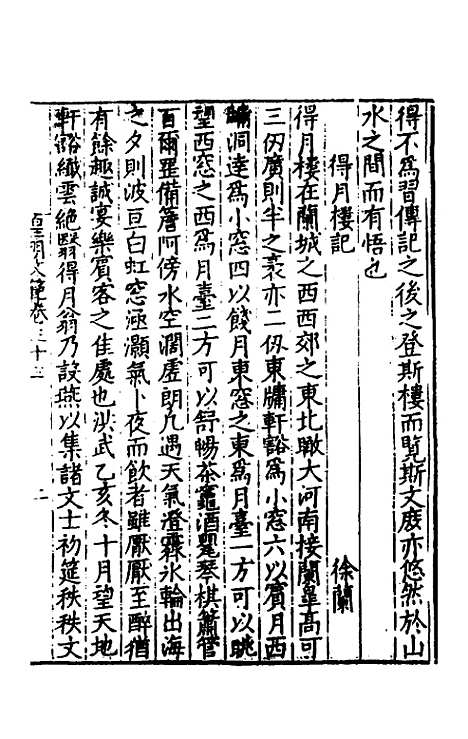 得不為習傳記之後之登斯樓而覽斯文庶亦悠然於山
水之間而有悟也
得月樓記 徐蘭
得月樓在蘭城之西西郊之東北瞰大河南接蘭皐高可
三仭廣則半之袤亦二仭東牖軒豁為小窓六以賓月西
牖洞達為小窓四以餞月東窓之東為月臺一方可以眺
望西窓之西為月臺二方可以舒暢茶竈酒鼈琴棋簫管
百爾罡備簷阿傍水空濶虛朗凢遇天氣澄霽氷輪出海
之夕則波亘白虹窓涵灝氣卜夜而飲者雖厭厭至醉猶
有餘趣誠宴樂賓客之佳處也洪武乙亥冬十月望天地
軒豁纖雲絶翳得月翁乃設燕以集諸文士初筵秩秩文
皇明文衡卷三十二 二